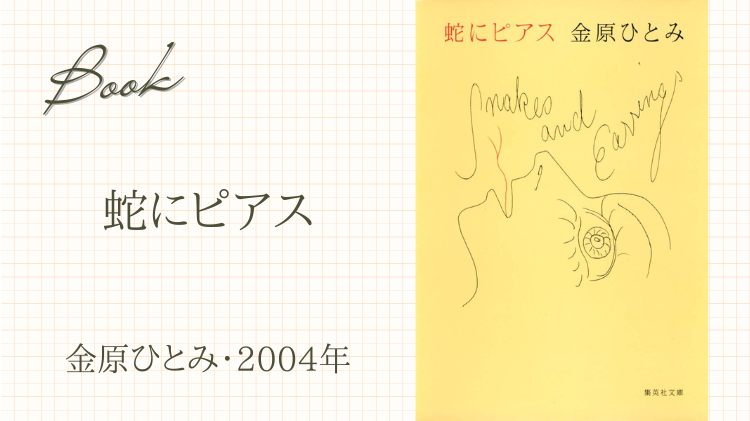 Book
蛇にピアス
金原ひとみ・2004年
蛇にピアス 金原ひとみ
Snakes
and
Earrings
集英社文庫